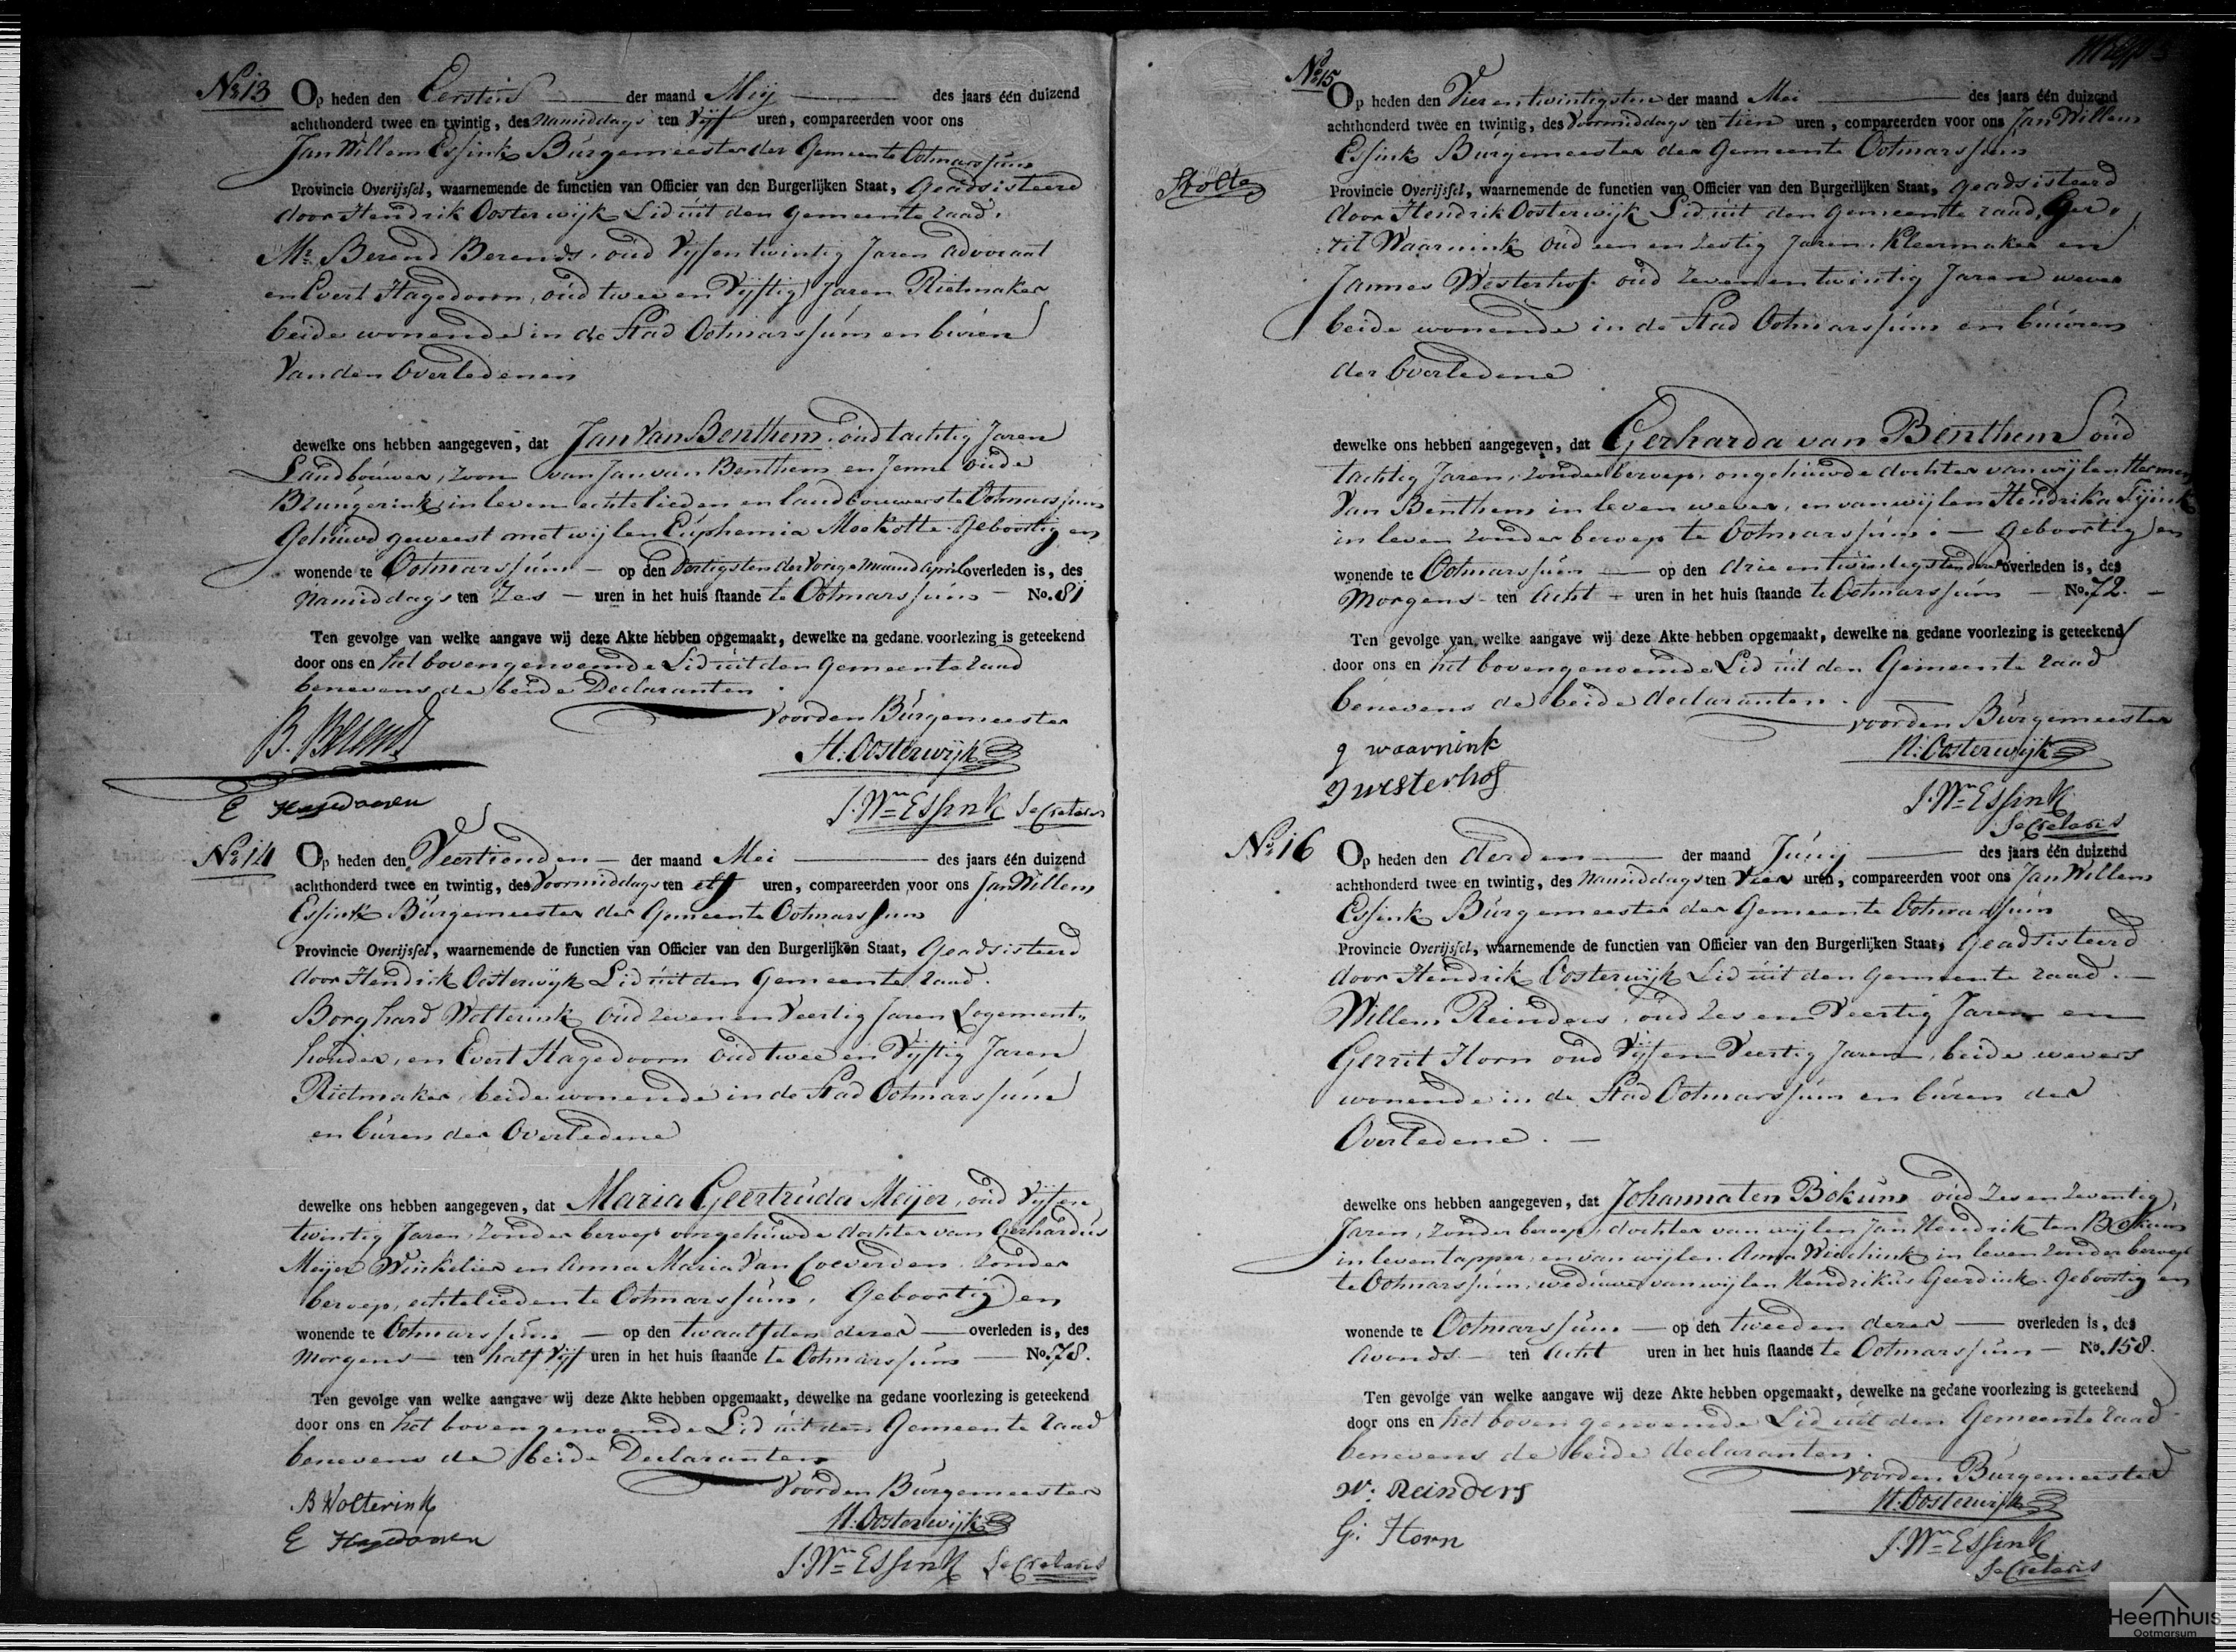 No 13 Op heden den Eersten der maand Meij des jaars één duizend
achthonderd twee en twintig, des Namiddags ten Vijf uren, compareerden voor ons
Jan Willem Essink Burgemeester der Gemeente Ootmarssum
Provincie Overijssel, waarnemende de functien van Officier van den Burgerlijken Staat, Geadsisteerd
door Hendrik Oosterwijk Lid uit den Gemeente raad.
Mr. Berend Berends, oud Vijf en twintig Jaren Advocaat
en Evert Hagedoorn, oud twee en Vijftig Jaren Rietmaker
beide wonende in de Stad Ootmarssum en buren
Van den Overledenen
dewelke ons hebben aangegeven, dat Jan Van Benthem, oud tachtig Jaren
Landbouwer, zoon van Jan van Benthem en Jenne oude
Brungerink, in leven echtelieden en landbouwers te Ootmarssum
Gehuwd geweest met wijlen Euphemia Moekotte. Geboortig en
wonende te Ootmarssum – op den dertigsten der Vorige Maand April overleden is, des
Namiddags ten Zes – uren in het huis staande te Ootmarssum – No. 81
Ten gevolge van welke aangave wij deze Akte hebben opgemaakt, dewelke na gedane voorlezing is geteekend
door ons en het bovengenoemde Lid uit den Gemeente raad
benevens de beide Declaranten.
Voor den Burgemeester
B. Berends
H. Oosterwijk
E Hagedooren
J. Wm Essink Secretaris
No 14 Op heden den Veertienden – der maand Mei des jaars één duizend
achthonderd twee en twintig, des Voormiddags ten elf uren, compareerden voor ons Jan Willem
Essink Burgemeester der Gemeente Ootmarssum
Provincie Overijssel, waarnemende de functien van Officier van den Burgerlijken Staat, Geadsisteerd
door Hendrik Oosterwijk Lid uit den Gemeente raad.
Borghard Wolterink oud zeven en Veertig Jaren Logement-
houder, en Evert Hagedoorn oud twee en Vijftig Jaren
Rietmaker, beide wonende in de Stad Ootmarssum
en buren der Overledene
dewelke ons hebben aangegeven, dat Maria Geertruida Meijer, oud Vijf en
twintig Jaren, Zonder beroep ongehuwde dochter van Gerhardus
Meijer Winkelier en Anna Maria Van Coeverden. zonder
beroep, echtelieden te Ootmarssum. Geboortig en
wonende te Ootmarssum – op den twaalfden dezer – overleden is, des
Morgens – ten half Vijf uren in het huis staande te Ootmarssum – No. 78.
Ten gevolge van welke aangave wij deze Akte hebben opgemaakt, dewelke na gedane voorlezing is geteekend
door ons en het bovengenoemde Lid uit den Gemeente raad
benevens de beide Declaranten
Voor den Burgemeester
B Wolterink
H. Oosterwijk
E Hagedooren
J. Wm Essink Secretaris
No 15
Op heden den Vier en twintigsten der maand Mei des jaars één duizend
achthonderd twee en twintig, des Voormiddags ten tien uren, compareerden voor ons Jan Willem
Essink Burgemeester der Gemeente Ootmarssum
Stolte
Provincie Overijssel, waarnemende de functien van Officier van den Burgerlijken Staat, geadsisteerd
door Hendrik Oosterwijk Lid uit den Gemeente raad, Ger-
rit Waarnink oud een en zestig Jaren. Kleermaker en
Jannes Westerhof. oud zeven en twintig Jaren wever
beide wonende in de Stad Ootmarssum en buren
der Overledene
dewelke ons hebben aangegeven, dat Gerharda van Benthem oud
tachtig Jaren, zonder beroep, ongehuwde dochter van wijlen Hermen
Van Benthem in leven wever, en van wijlen Hendrika Tijink
in leven zonder beroep te Ootmarssum. – geboortig en
wonende te Ootmarssum – op den drie en twintigsten dezer overleden is, des
Morgens – ten Acht – uren in het huis staande te Ootmarssum – No. 72. –
Ten gevolge van welke aangave wij deze Akte hebben opgemaakt, dewelke na gedane voorlezing is geteekend
door ons en het bovengenoemde Lid uit den Gemeente raad
benevens de beide declaranten.
voor den Burgemeester
g waarnink
H. Oosterwijk
J westerhof
J. Wm Essink
Secretaris
No 16 Op heden den derden der maand Junij des jaars één duizend
achthonderd twee en twintig, des Namiddags ten Vier uren, compareerden voor ons Jan Willem
Essink Burgemeester der Gemeente Ootmarssum
Provincie Overijssel, waarnemende de functien van Officier van den Burgerlijken Staat, Geadsisteerd
door Hendrik Oosterwijk Lid uit den Gemeente raad. –
Willem Reinders, oud zes en Veertig Jaren en
Gerrit Horn oud Vijf en Veertig Jaren, beide wevers
wonende in de Stad Ootmarssum en buren der
Overledene. –
dewelke ons hebben aangegeven, dat Johanna ten Bokum oud zes en zeventig
Jaren, zonder beroep, dochter van wijlen Jan Hendrik ten Bokum
in leven tapper, en van wijlen Anna in leven zonder beroep
te Ootmarssum, weduwe van wijlen Hendrikus Geerdink. Geboortig en
wonende te Ootmarssum – op den tweeden dezer – overleden is, des
Avonds – ten Acht uren in het huis staande te Ootmarssum – No. 158.
Ten gevolge van welke aangave wij deze Akte hebben opgemaakt, dewelke na gedane voorlezing is geteekend
door ons en het boven genoemde Lid uit den Gemeente raad
benevens de beide declaranten.
Voor den Burgemeester
W: Reinders
H. Oosterwijk
G: Horn
J. Wm Essink
Secretaris
Heemhuis
Ootmarsum